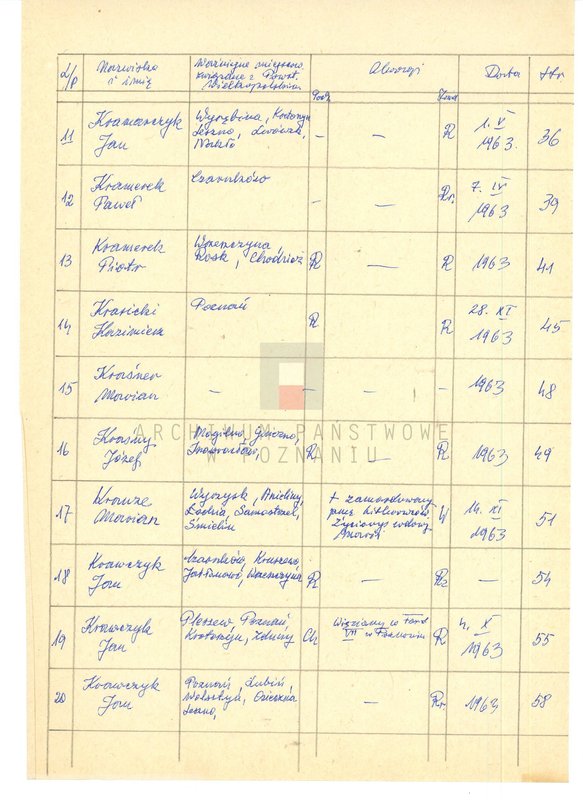 L/p Nazwisko i imię Ważniejsze miejscow. związane z Powst. Wielkopolskim Uwagi Data Str
11 Kramarczyk Jan Wyrzbina, Leszno, Nakło — — R 1. V 1963. 36
12 Kramerek Paweł Czarnków — — 7. IV 1963 39
13 Kramerek Piotr Chodzież R — R 1963 41
14 Krasicki Kazimierz Poznań R — R 28. XI 1963 45
15 Kraśner Marian — — — — 1963 48
16 Krasny Józef Mogilno, Gniezno, Inowrocław, R — R 1963 49
17 Krauze Marian Wyrzysk, Anieliny, Łodzia, Samostrzel, Śmielin + zamordowany przez hitlerowców Życiorys wdowy 14. XI 1963 51
18 Krawczyk Jan Czarnków, Kruszewo, R — — 54
19 Krawczyk Jan Pleszew, Poznań, Krotoszyn, Zduny Ch Więziony w Fort VII w Poznaniu R 4. X 1963 55
20 Krawczyk Jan Poznań, Lubiń, Wolsztyn, Osieczna Leszno, — 1963 58
ARCHIWUM PAŃSTWOWE
W POZNANIU